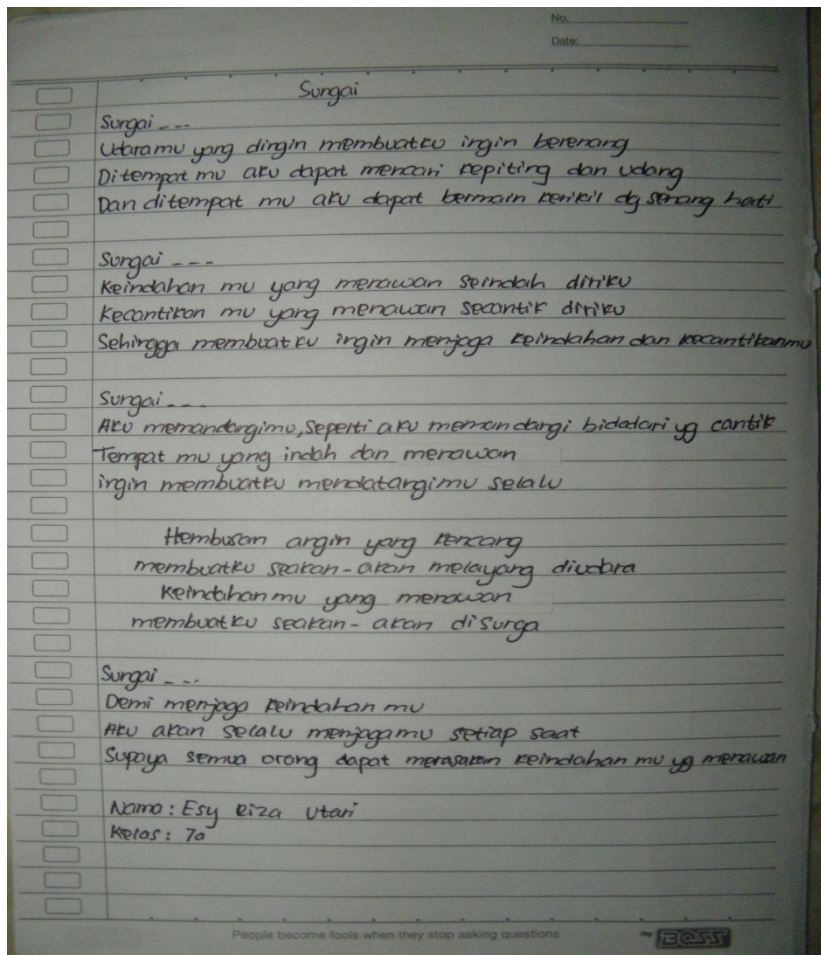 No.
Date:
Sungai
Sungai - - -
Udaramu yang dingin membuatku ingin berenang
Ditempat mu aku dapat mencari kepiting dan udang
Dan ditempat mu aku dapat bermain kerikil dg senang hati
Sungai - - -
Keindahan mu yang menawan seindah diriku
Kecantikan mu yang menawan secantik diriku
Sehingga membuatku ingin menjaga keindahan dan kecantikanmu
Sungai - - -
Aku memandangimu, Seperti aku memandangi bidadari yg cantik
Tempat mu yang indah dan menawan
ingin membuatku mendatangimu selalu
Hembusan angin yang kencang
membuatku seakan-akan melayang diudara
Keindahan mu yang menawan
membuatku seakan-akan disurga
Sungai - - -
Demi menjaga keindahan mu
Aku akan selalu menjagamu setiap saat
Supaya semua orang dapat merasakan keindahan mu yg menawan
Nama : Esy Riza Utari
Kelas : 7a
People become fools when they stop asking questions
my BOSS